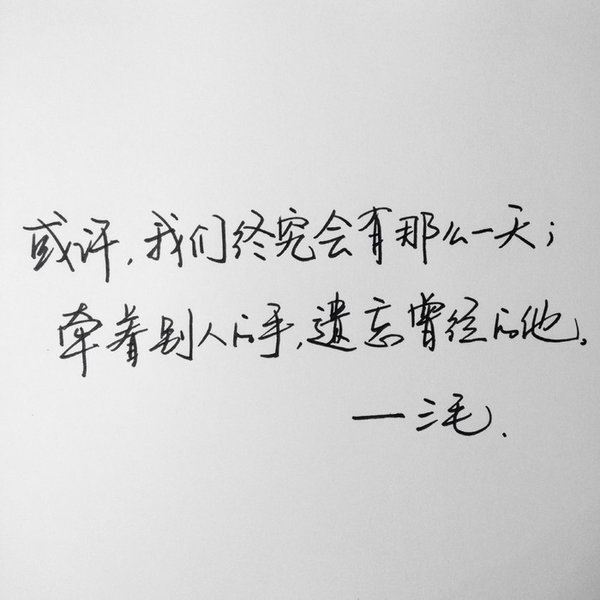 或许，我们终究会有那么一天；
牵着别人的手，遗忘曾经的他。
一三毛.